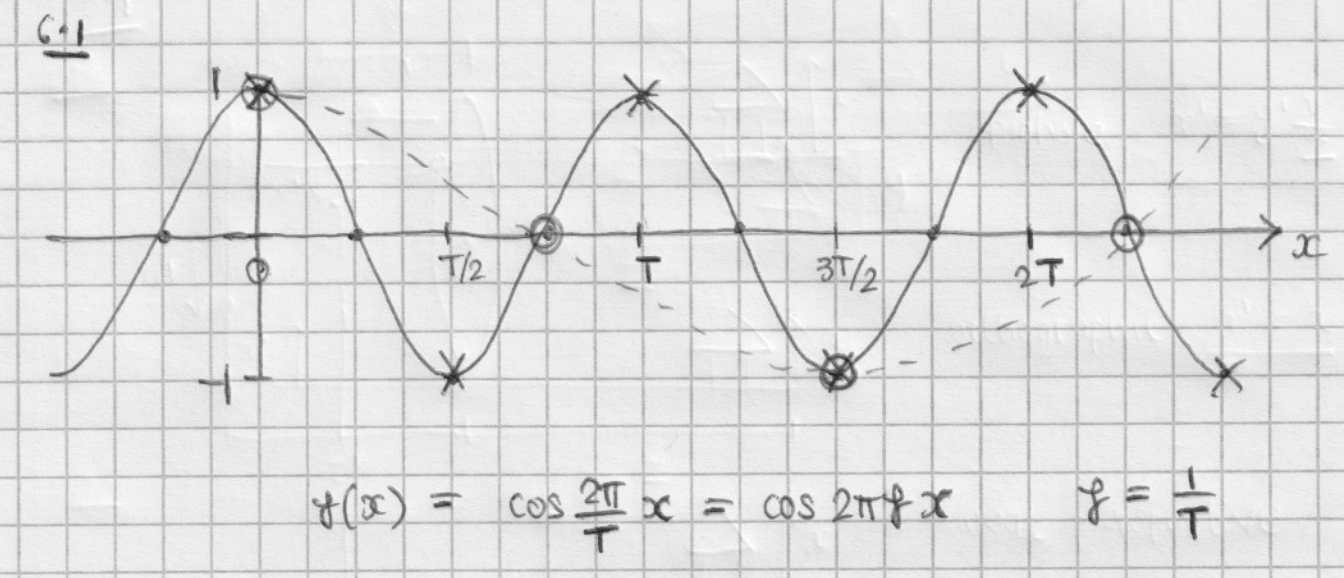 6.1
1
0 T/2 T 3T/2 2T x
-1
f(x) = cos 2π/T x = cos 2πfx f = 1/T